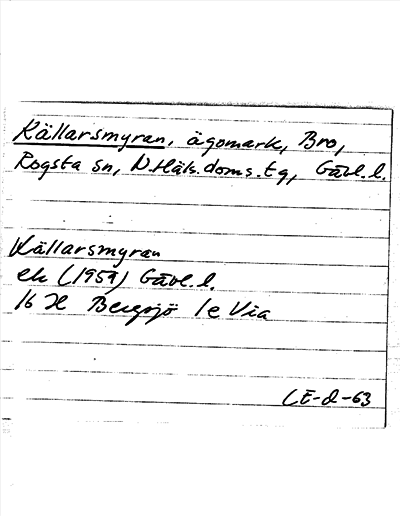 Källarsmyran, ägomark, Bro,
Rogsta sn, N.Häls.doms.tg, Gävl.l.
Källarsmyran
ek (1959) Gävl.l.
16 H Bergsjö 1e Via
LE-d-63